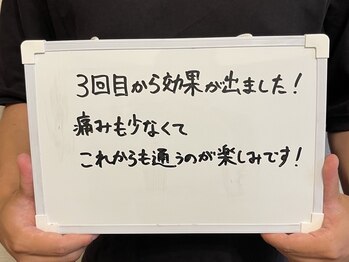 3回目から効果が出ました!
痛みも少なくて
これからも通うのが楽しみです!